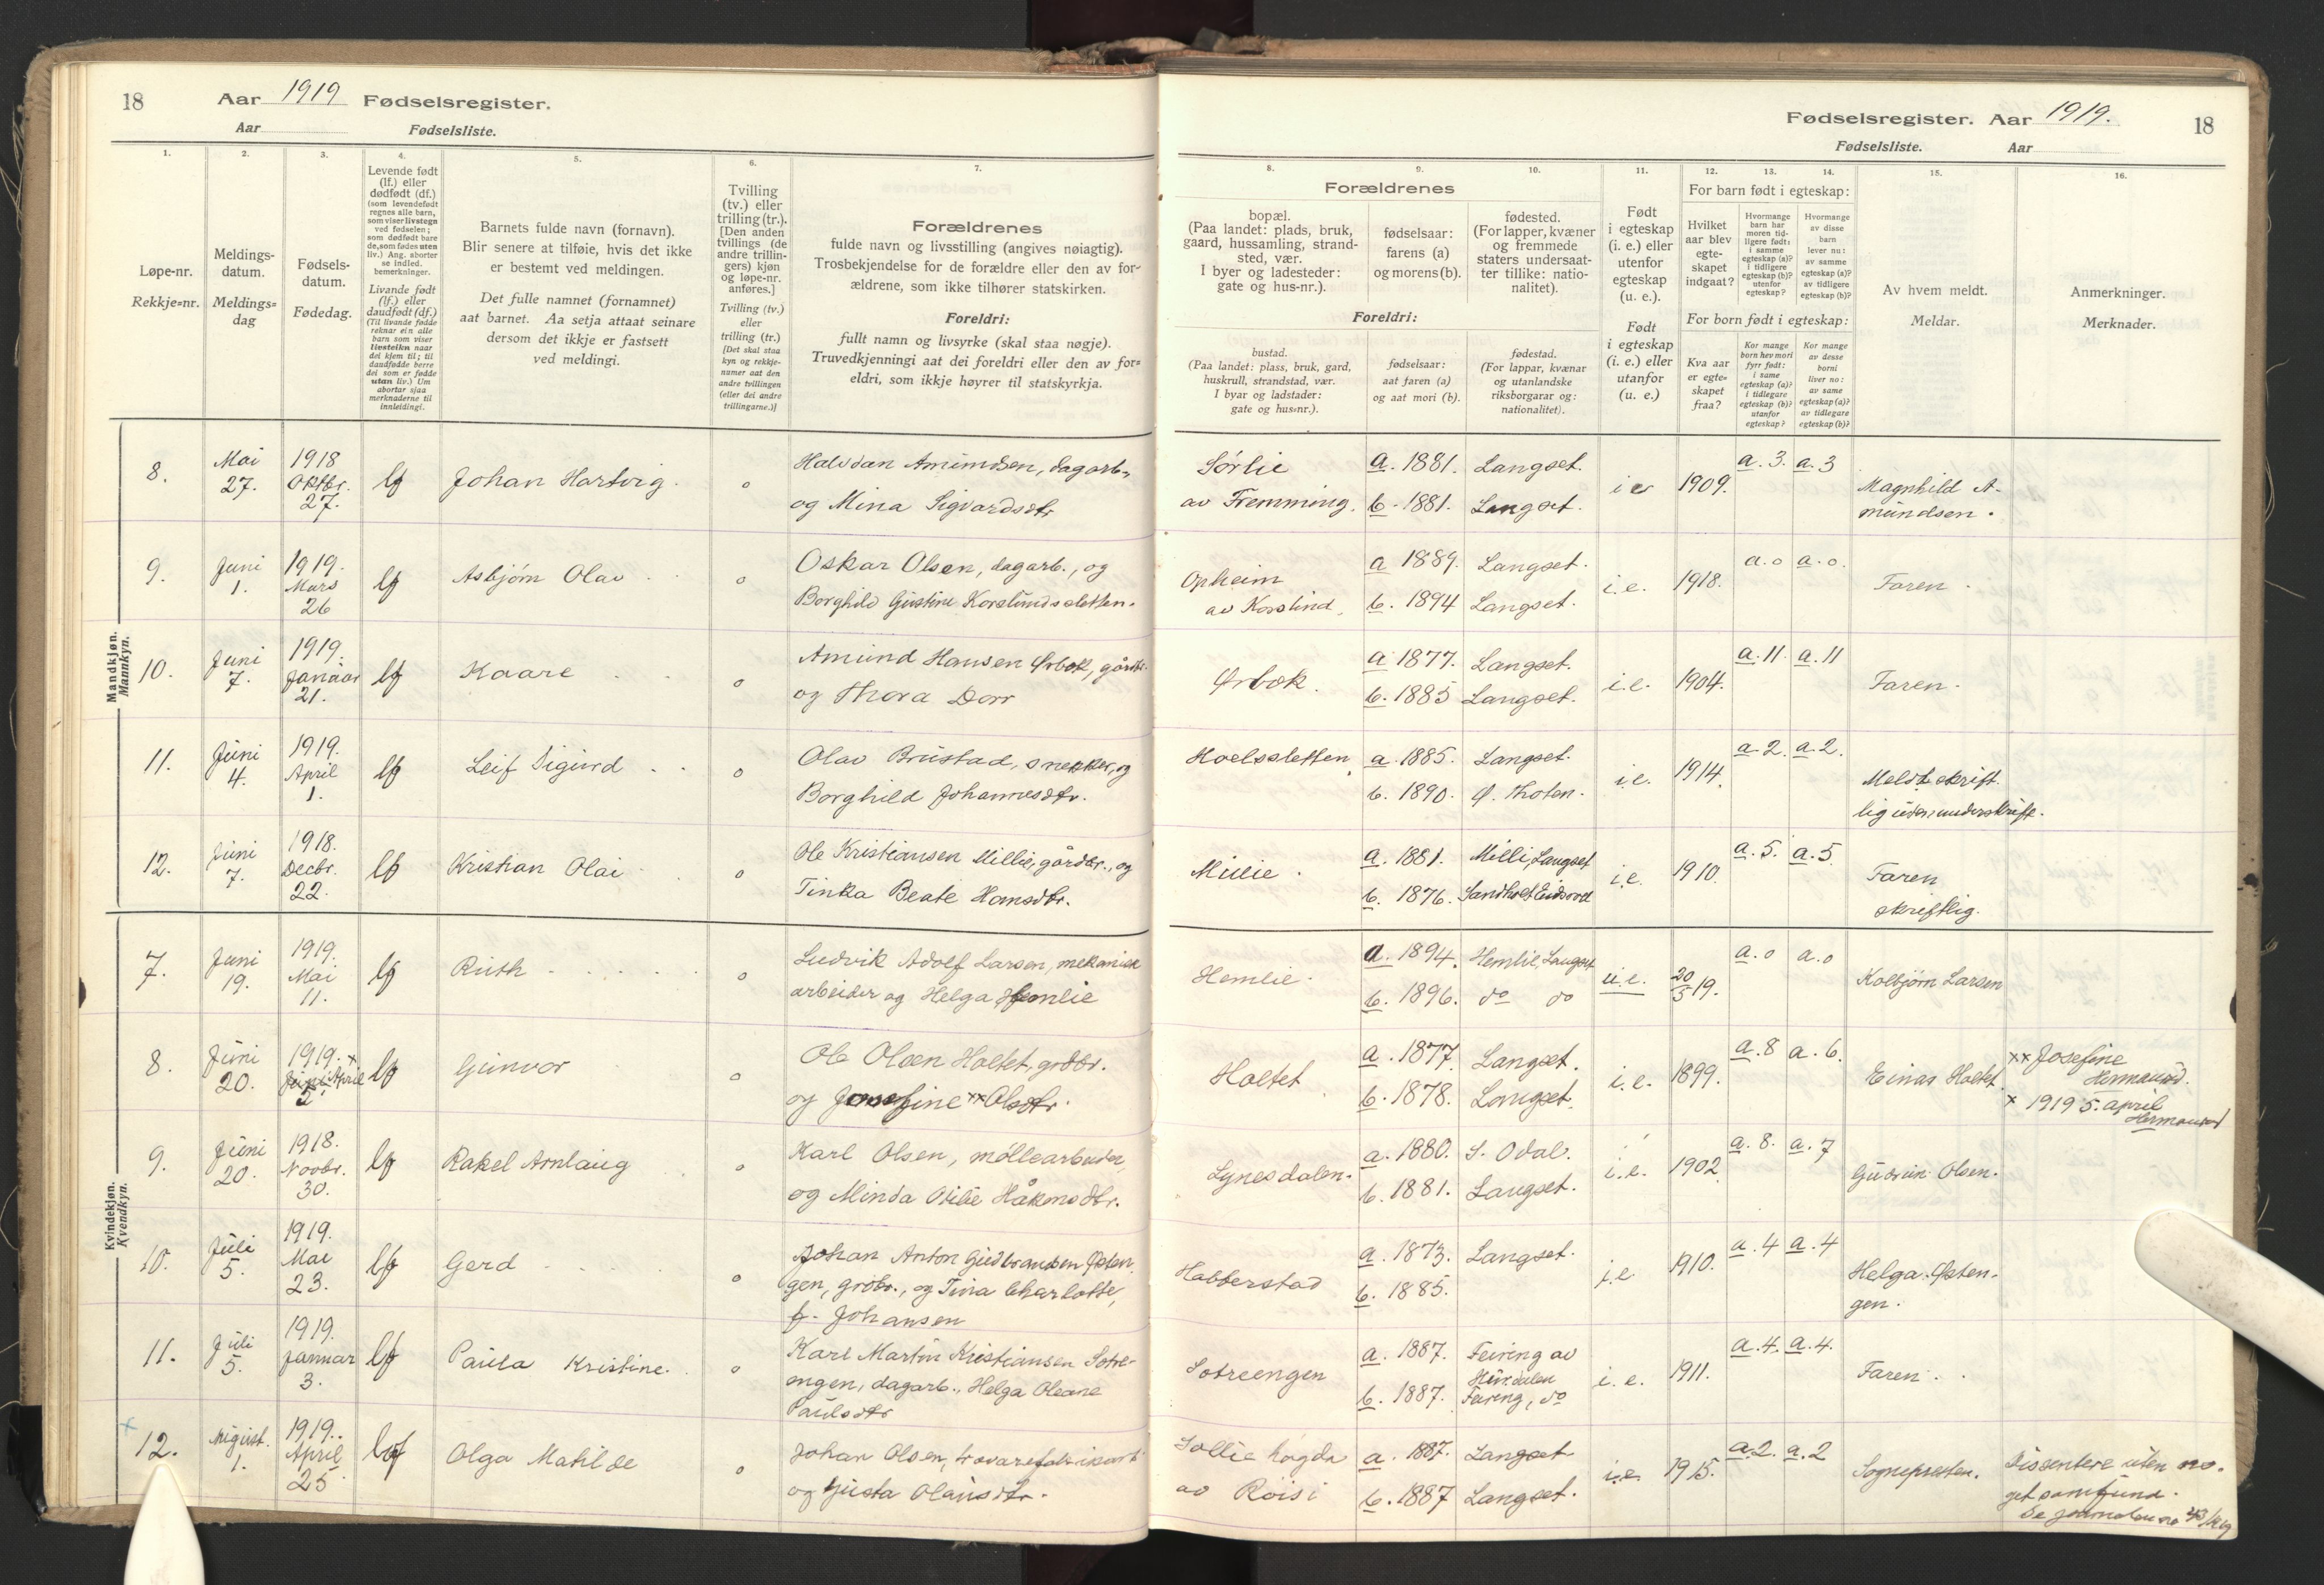 18
Aar 1919 Fødselsregister.
Aar
Fødselsliste.
Fødselsregister. Aar 1919.
18
Fødselsliste.
Aar
1.
Løpe-nr.
Rekkje-nr.
2.
Meldings-
datum.
Meldings-
dag
3.
Fødsels-
datum.
Fødedag.
4.
Levende født
(lf.) eller
dødfødt (df.)
(som levendefødt
regnes alle barn,
som viser livstegn
ved fødselen;
som dødfødt bare
de, som fødes uten
liv.) Ang. aborter
se indled.
bemerkninger.
Livande født
(lf.) eller
daudfødt (df.)
(Til livande fødde
reknar ein alle
barn som viser
livsteikn naar
dei kjem til; til
daudfødde berre
dei som er fødde
utan liv.) Um
abortar sjaa
merknaderne til
innleidingi.
5.
Barnets fulde navn (fornavn).
Blir senere at tilføie, hvis det ikke
er bestemt ved meldingen.
Det fulle namnet (fornamnet)
aat barnet. Aa setja attaat seinare
dersom det ikkje er fastsett
ved meldingi.
6.
Tvilling
(tv.) eller
trilling (tr.).
[Den anden
tvillings (de
andre trillin-
gers) kjøn
og løpe-nr.
anføres.]
Tvilling (tv.)
eller
trilling (tr.)
[Det skal staa
kyn og rekkje-
numer aat den
andre tvillingen
(eller dei andre
trillingarne.)]
7.
Forældrenes
fulde navn og livsstilling (angives nøiagtig).
Trosbekjendelse for de forældre eller den av for-
ældrene, som ikke tilhører statskirken.
Foreldri:
fullt namn og livsyrke (skal staa nøgje).
Truvedkjenningi aat dei foreldri eller den av for-
eldri, som ikkje høyrer til statskyrkja.
8.
Forældrenes
bopæl.
(Paa landet: plads, bruk,
gaard, hussamling, strand-
sted, vær.
I byer og ladesteder:
gate og hus-nr.).
Foreldri:
bustad.
(Paa landet: plass, bruk, gard,
huskrull, strandstad, vær.
I byar og ladstader:
gate og hus-nr.).
9.
fødselsaar:
farens (a)
og morens (b).
fødselsaar:
aat faren (a)
og aat mori (b).
10.
fødested.
(For lapper, kvæner
og fremmede
staters undersaat-
ter tillike: natio-
nalitet).
fødestad.
(For lappar, kvænar
og utanlandske
riksborgarar og:
nationalitet).
11.
Født
i egteskap
(i. e.) eller
utenfor
egteskap
(u. e.).
Født
i egteskap
(i. e.) eller
utanfor
(u. e.)
12.
13.
14.
For barn født i egteskap:
Hvilket
aar blev
egte-
skapet
indgaat?
Hvormange
barn har
moren tid-
ligere født:
i samme
egteskap (a)?
i tidligere
egteskap (b)?
utenfor
egteskap?
Hvormange
av disse
barn
lever nu:
av samme
egteskap (a)?
av tidligere
egteskap (b)?
For born født i egteskap:
Kva aar
er egte-
skapet
fraa?
Kor mange
born hev mori
fyrr født:
i same
egteskap (a)?
i tidlegare
egteskap (b)?
utanfor
egteskap?
Kor mange
av desse
borni
liver no:
av same
egteskap (a)?
av tidlegare
egteskap (b)?
15.
Av hvem meldt.
Meldar.
16.
Anmerkninger.
Merknader.
Mandkjøn.
Mannkyn.
8.
Mai
27.
1918
Oktbr.
27.
lf
Johan Hartvig.
o
Halvdan Amundsen, dagarb.,
og Mina Sigvardsdtr
Sørlie
av Fremming.
a. 1881.
b. 1881.
Langset.
Langset.
i e
1909.
a. 3.
a. 3
Magnhild A-
mundsen.
9.
Juni
1.
1919.
Mars
26
lf
Asbjørn Olav
o
Oskar Olsen, dagarb., og
Borghild Gustine Korslundssletten.
Opheim
av Korslund.
a 1889.
b. 1894
Langset.
Langset.
i.e.
1918.
a. o
a. o.
Faren
10.
Juni
7.
1919.
Januar
21.
lf
Kaare
o
Amund Hansen Ørbæk, gårdbr.
og Thora Dorr
Ørbæk.
a 1877.
b. 1885
Langset.
Langset.
i.e.
1904.
a. 11.
a. 11
Faren.
11.
Juni
4.
1919.
April
1.
lf
Leif Sigurd
o
Olav Brustad, snekker, og
Borghild Johannesdtr.
Hoelssletten
a. 1885.
b. 1890.
Langset.
Ø. Thoten.
i.e.
1914.
a. 2.
a. 2.
Meldt skrift-
lig uten underskrift.
12.
Juni
7.
1918.
Decbr.
22.
lf
Kristian Olai
o
Ole Kristiansen Millie, gårdbr., og
Tinka Beate Hansdtr.
Millie
a. 1881.
b. 1876.
Milli, Langset
Sandholt Eidsvold
i.e.
1910.
a. 5.
a. 5.
Faren
skriftlig.
Kvindekjøn.
Kvendkyn.
7.
Juni
19.
1919.
Mai
11.
lf
Ruth
o
Ludvik Adolf Larsen, mekanisk
arbeider og Helga Hemlie
Hemlie.
a. 1894.
b. 1896.
Hemlie, Langset
do do
u.e.
20/5 19.
a. o
a. o
Kolbjørn Larsen
8.
Juni
20.
1919. x
Juni April
5.
lf
Gunvor
o
Ole Olsen Holtet, grdbr.
og Josefine xx Olsdtr.
Holtet
a. 1877.
b. 1878.
Langset.
Langset.
i.e.
1899.
a. 8
a. 6.
Einar Holtet.
xx Josefine
Hermansd.
x 1919 5. april
Hermansd
9.
Juni
20.
1918.
Novbr.
30.
lf
Rakel Arnlaug
o
Karl Olsen, møllearbeider,
og Minda Otilie Håkonsdtr.
Lynesdalen.
a. 1880.
b. 1881.
S. Odal.
Langset.
i.e.
1902
a. 8.
a. 7
Gudrun Olsen.
10.
Juli
5.
1919.
Mai
23.
lf
Gerd
o
Johan Anton Gudbrandsen Østen-
gen, grdbr., og Tina Charlotte,
f. Johansen
Habberstad
a. 1873.
b. 1885.
Langset.
i.e.
1910.
a. 4
a. 4
Helga Østen-
gen.
11.
Juli
5.
1919.
Januar
3.
lf
Paula Kristine.
o
Karl Martin Kristiansen Sotre-
engen, dagarb., Helga Oleane
Paulsdtr
Sotreengen
a. 1887.
b. 1887.
Feiring av
Hurdalen
Feiring, do
i. e.
1911.
a. 4.
a. 4.
Faren
12.
August.
1.
1919.
April
25
lf
Olga Matilde
o
Johan Olsen, trævarefabrikarb.
og Gusta Olausdtr.
Sollie høgda
av Röisi
a. 1887.
b. 1887
Langset
Langset.
i.e.
1915.
a. 2.
a. 2
Sognepresten.
Dissentere uten no-
get samfund.
Se journalen no 43/1919